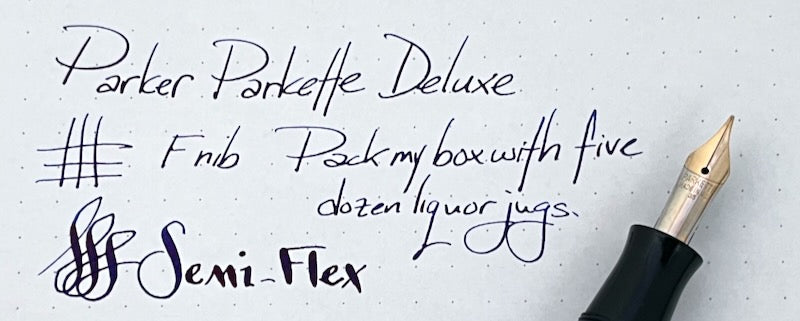 Parker Parkette Deluxe
F nib Pack my box with five
dozen liquor jugs.
Semi-Flex
PARKER